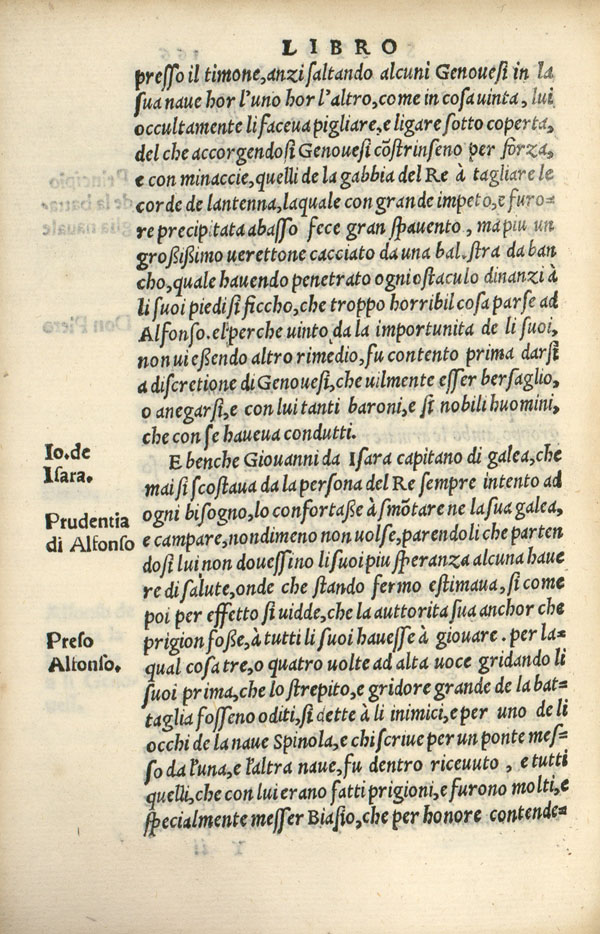 LIBRO
presso il timone, anzi saltando alcuni Genouesi in la
sua naue hor l'uno hor l'altro, come in cosa uinta, lui
occultamente li faceua pigliare, e ligare sotto coperta,
del che accorgendosi Genouesi cõstrinseno per forza,
e con minaccie, quelli de la gabbia del Re à tagliare le
corde de lantenna, laquale con grande impeto, e furo=
re precipitata abasso fece gran spauento, ma piu un
großißimo uerettone cacciato da una bal stra da ban
cho, quale hauendo penetrato ogni ostaculo dinanzi à
li suoi piedi si ficcho, che troppo horribil cosa parse ad
Alfonso. el perche uinto da la importunita de li suoi,
non ui eßendo altro rimedio, fu contento prima darsi
a discretione di Genouesi, che uilmente esser bersaglio,
o anegarsi, e con lui tanti baroni, e si nobili huomini,
che con se haueua condutti.
Io. de
Isara.
E benche Giouanni da Isara capitano di galea, che
mai si scostaua da la persona del Re sempre intento ad
Prudentia
di Alfonso
ogni bisogno, lo confortaße à smõtare ne la sua galea,
e campare, nondimeno non uolse, parendoli che parten
dosi lui non douessino li suoi piu speranza alcuna haue
re di salute, onde che stando fermo estimaua, si come
poi per effetto si uidde, che la auttorita sua anchor che
Preso
Alfonso.
prigion foße, à tutti li suoi hauesse à giouare. per la=
qual cosa tre, o quatro uolte ad alta uoce gridando li
suoi prima, che lo strepito, e gridore grande de la bat=
taglia fosseno oditi, si dette à li inimici, e per uno de li
occhi de la naue Spinola, e chi scriue per un ponte mes=
so da l'una, e l'altra naue, fu dentro riceuuto, e tutti
quelli, che con lui erano fatti prigioni, e furono molti, e
specialmente messer Biasio, che per honore contende=